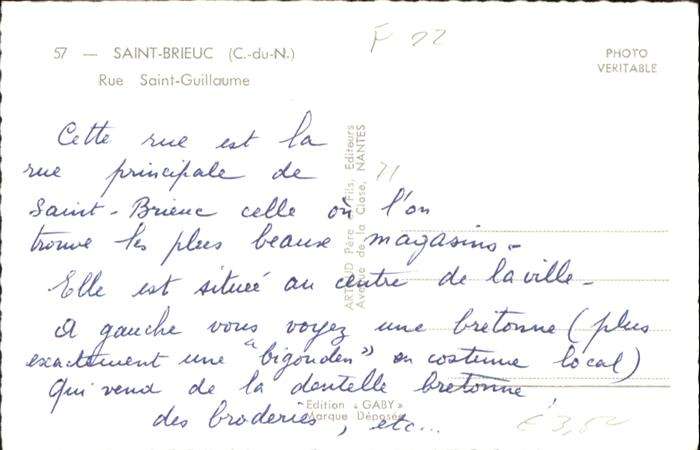 57 — SAINT-BRIEUC (C.-du-N.)
Rue Saint-Guillaume
F 22
PHOTO
VERITABLE
Cette rue est la
rue principale de
Saint-Brieuc celle où l'on
trouve les plus beaux magasins -
Elle est située au centre de la ville -
A gauche vous voyez une bretonne (plus
exactement une "bigouden") en costume local)
qui vend de la dentelle bretonne,
des broderies, etc...
ARTAUD Père & Fils, Editeurs
Avenue de la Close, NANTES
71
Edition « GABY »
Marque Déposée